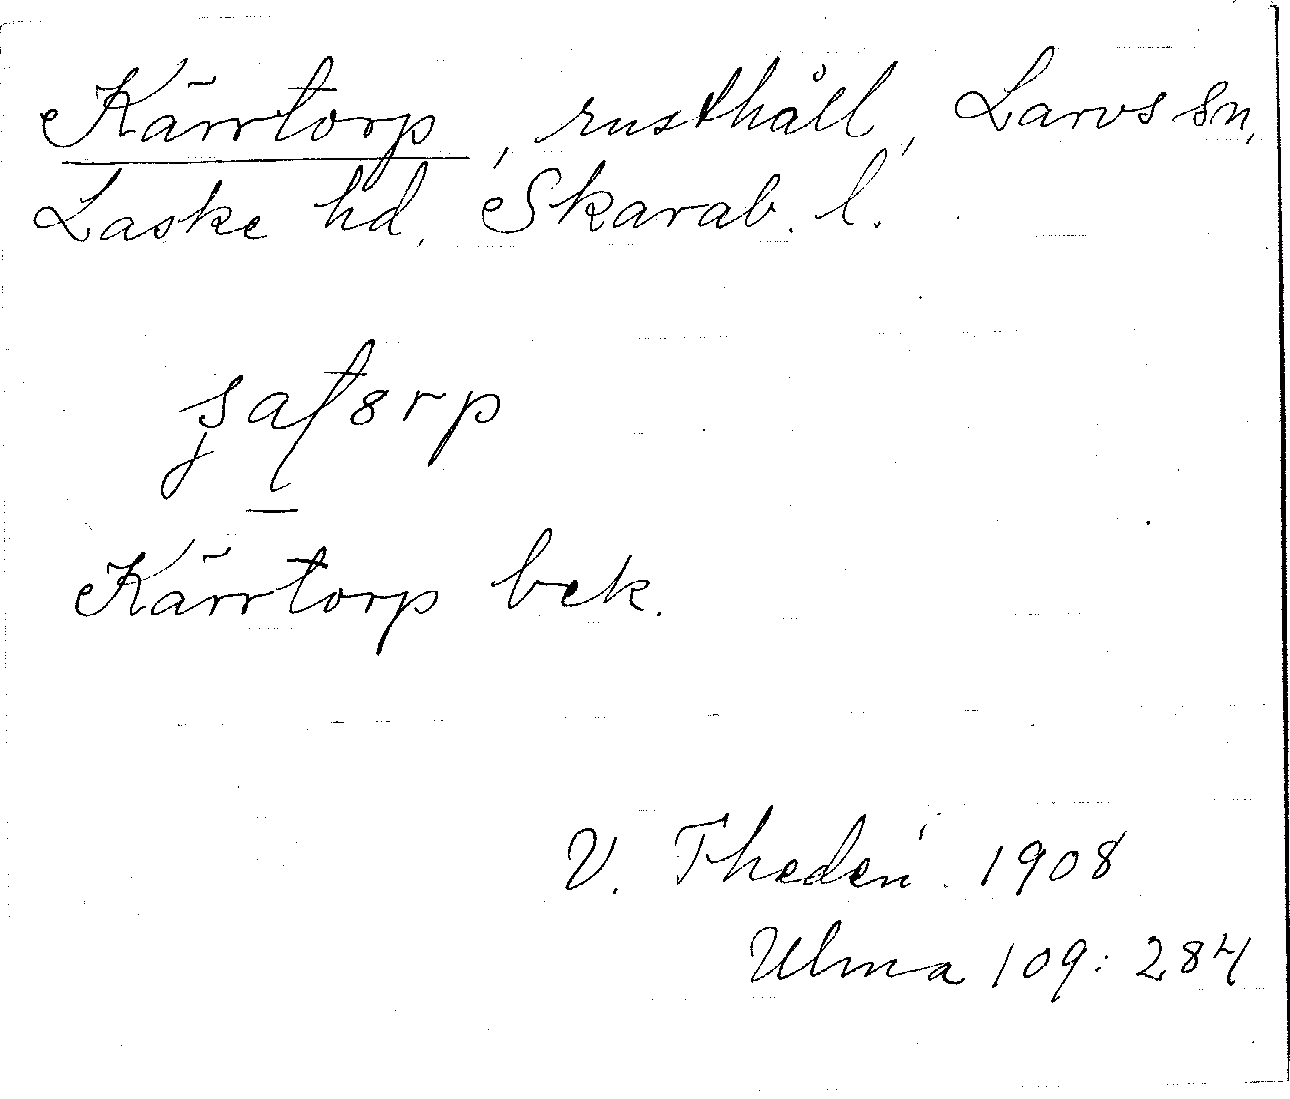 Kärrtorp, rusthåll, Larvs sn,
Laske hd, Skarab. l.
Kärrtorp bek.
V. Thedén 1908
Ulma 109: 284